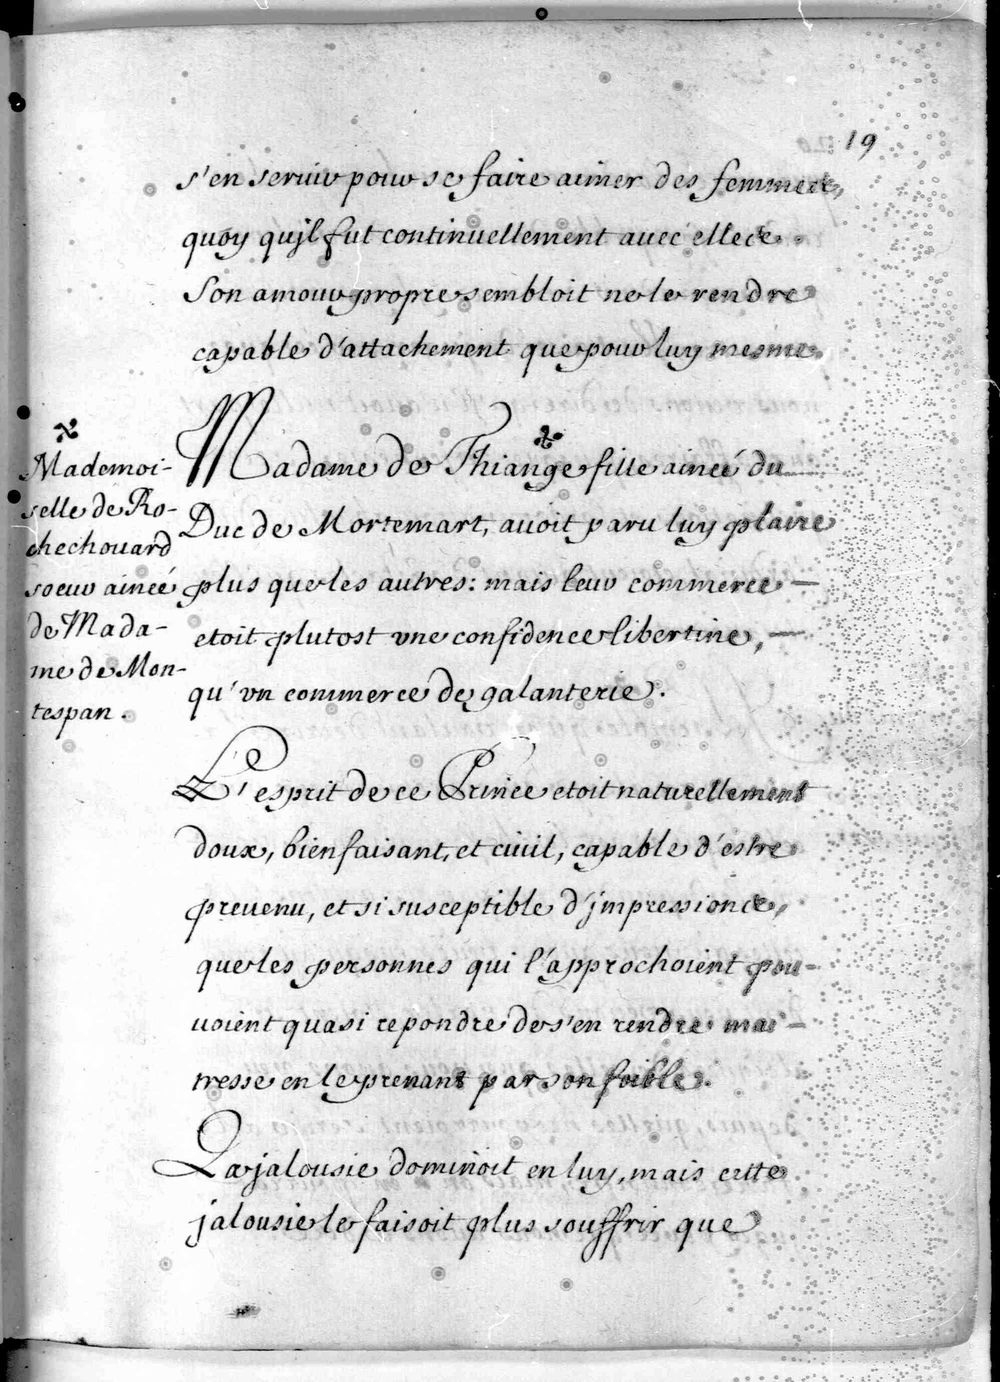 19
s'en seruir pour se faire aimer des femmes,
quoy qu'jl fut continuellement auec elles.
Son amour propre sembloit ne le rendre
capable d'attachement que pour luy mesme.
Madame de Thiange fille ainée du
Duc de Mortemart, auoit paru luy plaire
plus que les autres: mais leur commerce
etoit plutost vne confidence libertine,
qu'vn commerce de galanterie.
Mademoi-
selle de Ro-
chechouard
soeur ainée
de Mada-
me de Mon-
tespan.
L'esprit de ce Prince etoit naturellement
doux, bien faisant, et ciuil, capable d'estre
preuenu, et si susceptible d'jmpressions,
que les personnes qui l'approchoient pou-
uoient quasi repondre de s'en rendre mai-
tresse en le prenant par son foible.
La jalousie dominoit en luy, mais cette
jalousie le faisoit plus souffrir que